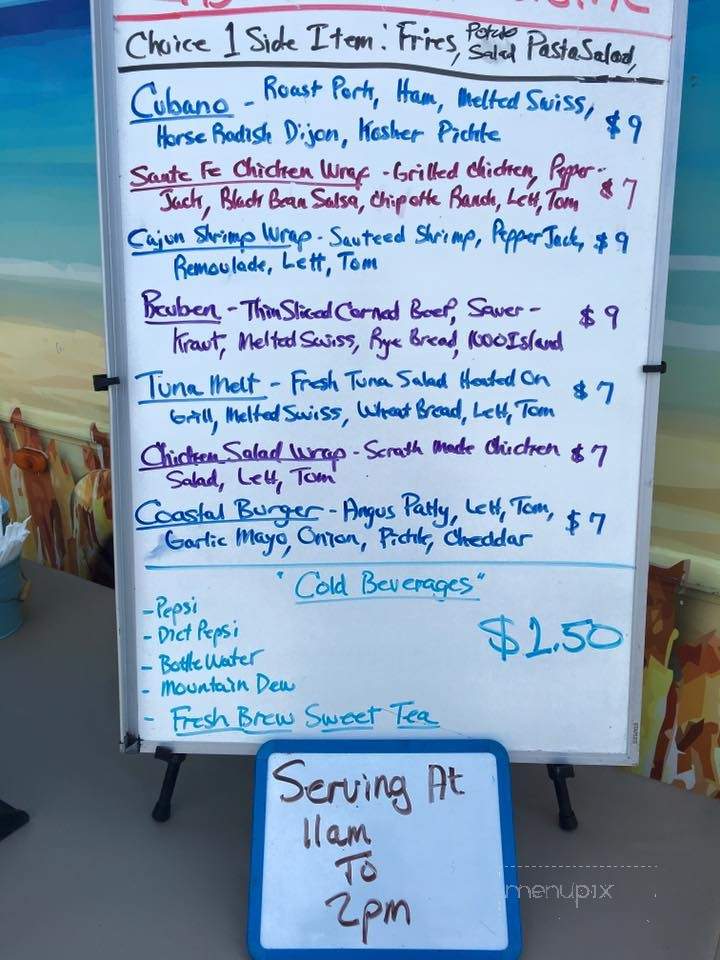 Choice 1 Side Item: Fries, Potato Salad Pasta Salad,
Cubano - Roast Pork, Ham, Melted Swiss, $9
Horse Radish Dijon, Kosher Pickle
Sante Fe Chicken Wrap - Grilled Chicken, Pepper- $7
Jack, Black Bean Salsa, Chipotle Ranch, Lett, Tom
Cajun Shrimp Wrap - Sauteed Shrimp, Pepper Jack, $9
Remoulade, Lett, Tom
Reuben - Thin Sliced Corned Beef, Sauer- $9
Kraut, Melted Swiss, Rye Bread, 1000 Island
Tuna Melt - Fresh Tuna Salad Heated On $7
Grill, Melted Swiss, Wheat Bread, Lett, Tom
Chicken Salad Wrap - Scrath Made Chicken $7
Salad, Lett, Tom
Coastal Burger - Angus Patty, Lett, Tom, $7
Garlic Mayo, Onion, Pickle, Cheddar
"Cold Beverages"
- Pepsi
- Diet Pepsi
$1.50
- Bottle Water
- Mountain Dew
- Fresh Brew Sweet Tea
Serving At
11am
To
2pm
menupix